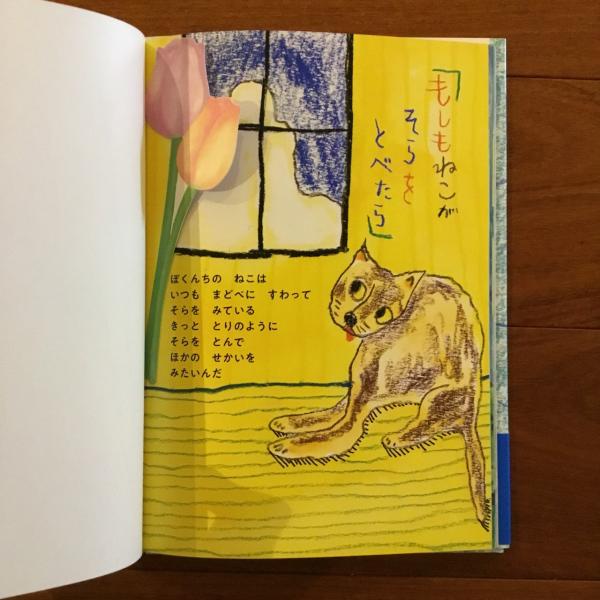 「もしもねこが
そらを
とべたら」
ぼくんちの　ねこは
いつも　まどべに　すわって
そらを　みている
きっと　とりのように
そらを　とんで
ほかの　せかいを
みたいんだ